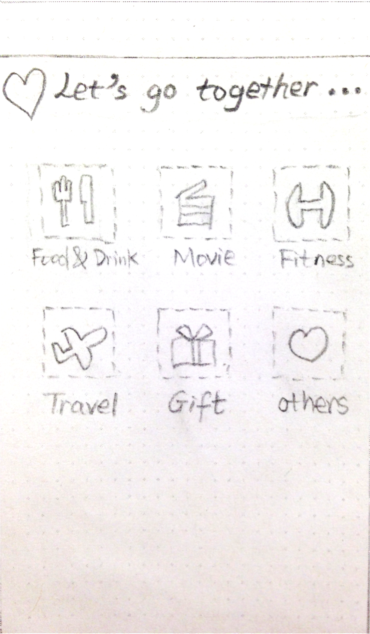 Let's go together...
Food & Drink Movie Fitness
Travel Gift others